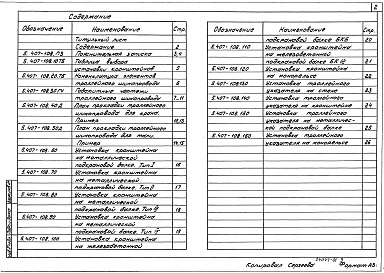 2
Содержание
Обозначение Наименование Стр.
Титульный лист
Содержание 2
5.407-108.ПЗ Пояснительная записка 3,4
5.407-108.10ТБ Таблица выбора
установки кронштейнов 5
5.407-108.20.ТБ Номенклатура элементов
троллейного шинопровода 6
5.407-108.30.ГЧ Габаритные чертежи
троллейного шинопровода 7..11
5.407-108.40.Д План прокладки троллейного
шинопровода для крана.
Пример 12,13
5.407-108.50.Д План прокладки троллейного
шинопровода для тали.
Пример 14,15
5.407-108.60 Установка кронштейна
на металлической
подкрановой балке. Тип I 16
5.407-108.70 Установка кронштейна
на металлической
подкрановой балке. Тип II 17
5.407-108.80 Установка кронштейна
на металлической
подкрановой балке. Тип III 18
5.407-108.90 Установка кронштейна
на металлической
подкрановой балке. Тип IV 19
5.407-108.100 Установка кронштейна
на железобетонной
Обозначение Наименование Стр.
подкрановой балке БК6 20
5.407-108.110 Установка кронштейна
на железобетонной
подкрановой балке БК 12 21
5.407-108.120 Установка кронштейна
на монорельсе 22
5.407-108.130 Установка троллейного
указателя на стене 23
5.407-108.140 Установка троллейного
указателя на кронштейне 24
5.407-108.150 Установка троллейного
указателя на металличес-
кой подкрановой балке 25
5.407-108.160 Установка троллейного
указателя на монорельсе 26
Копировал Сергеева Формат А3